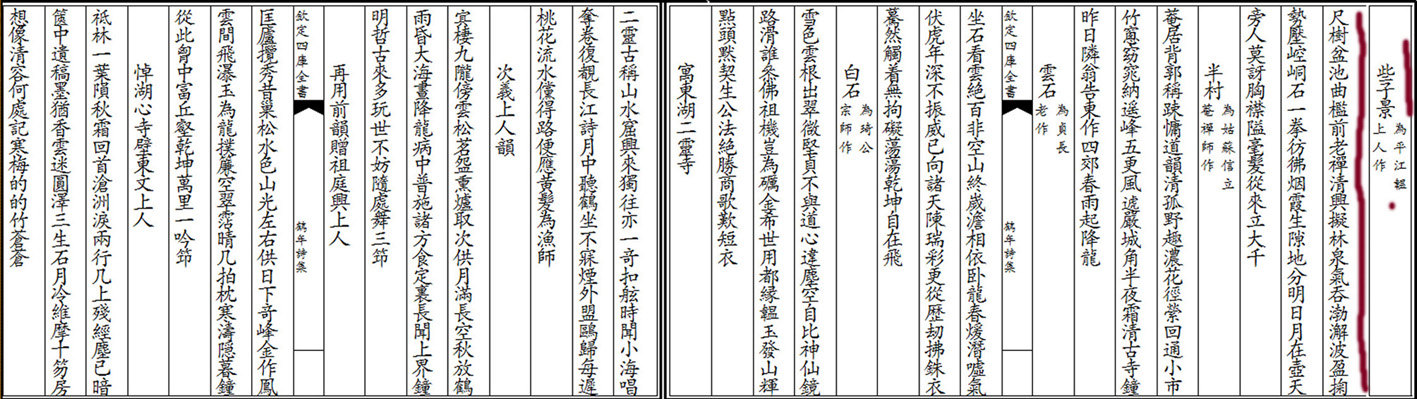 些子景 為平江韞
上人作
尺樹盆池曲檻前老禪清興擬林泉氣吞渤澥波盈掬
勢壓崆峒石一拳彷彿烟霞生隙地分明日月在壺天
旁人莫訝胸襟隘毫髮從來立大千
半村 為姑蘇信立
菴禪師作
菴居背郭稱踈慵道韻清孤野趣濃花徑縈回通小市
竹窻窈窕納遥峰五更風遞嚴城角半夜霜清古寺鐘
昨日隣翁告東作四郊春雨起降龍
雲石 為貞長
老作
欽定四庫全書 鶴年詩集
坐石看雲絶百非空山終嵗澹相依卧龍春煖潛嘘氣
伏虎年深不振威已向諸天陳瑞彩更從歴刼拂銖衣
驀然觸着無拘礙蕩蕩乾坤自在飛
白石 為琦公
宗師作
雪色雲根出翠微堅貞不與道心違塵空自比神仙鏡
路滑誰叅佛祖機豈為礪金希世用都緣韞玉發山輝
點頭黙契生公法絶勝商歌歎短衣
寓東湖二靈寺
二靈古稱山水窟興來獨往亦一奇扣舷時聞小海唱
奪卷復觀長江詩月中聽鶴坐不寐煙外盟鷗歸每遲
桃花流水儻得路便應黄髪為漁師
次義上人韻
寘棲九隴傍雲松茗盌熏爐取次供月滿長空秋放鶴
雨昏大海晝降龍病中普施諸方食定裏長聞上界鐘
明哲古來多玩世不妨隨處舞三筇
再用前韻贈祖庭興上人
欽定四庫全書 鶴年詩集
匡廬攬秀昔巢松水色山光左右供日下奇峰金作鳳
雲間飛瀑玉為龍撲簾空翠霑晴几拍枕寒濤隱暮鐘
從此胷中富丘壑乾坤萬里一吟筇
悼湖心寺壁東文上人
祇林一葉隕秋霜回首滄洲淚兩行几上殘經塵已暗
篋中遺稿墨猶香雲迷圓澤三生石月冷維摩十笏房
想像清容何處記寒梅的的竹蒼蒼